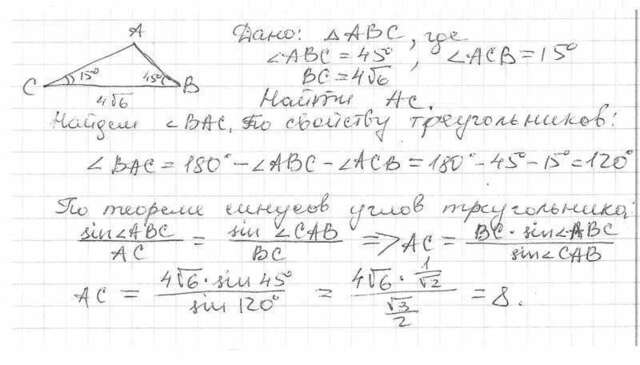 A
C 15° 45° B
4√6
Дано: △ABC, где
∠ABC = 45°, ∠ACB = 15°
BC = 4√6
Найти AC.
Найдем ∠BAC. По свойству треугольников:
∠BAC = 180° - ∠ABC - ∠ACB = 180° - 45° - 15° = 120°
По теореме синусов углов треугольника:
sin∠ABC / AC = sin∠CAB / BC => AC = BC · sin∠ABC / sin∠CAB
AC = 4√6 · sin 45° / sin 120° = 4√6 · 1/√2 / √3/2 = 8.